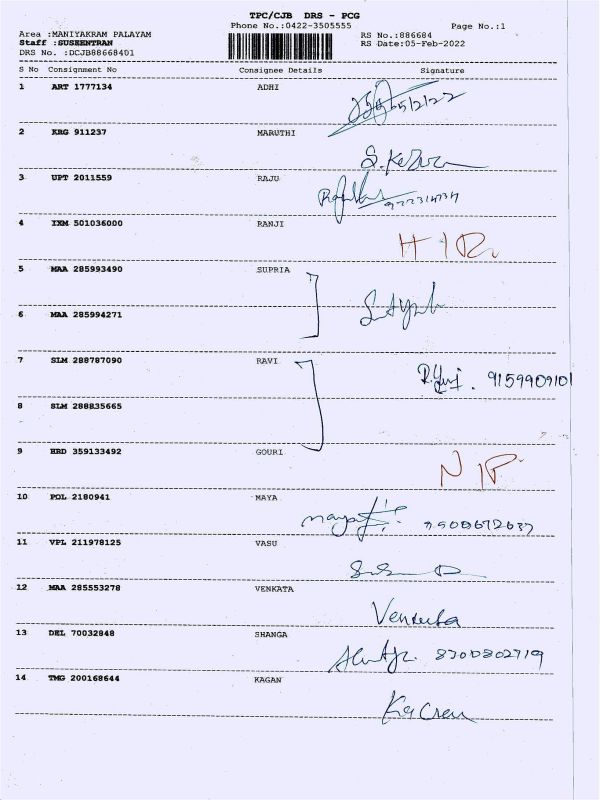 TPC/CJB DRS - PCG
Phone No.:0422-3505555 Page No.:1
Area :MANIYAKRAM PALAYAM RS No.:886684
Staff :SUSEENTRAN RS Date:05-Feb-2022
DRS No. :DCJB88668401
S No Consignment No Consignee Details Signature
1 ART 1777134 ADHI 5/2/22
2 KRG 911237 MARUTHI
3 UPT 2011559 RAJU
4 IXM 501036000 RANJI
5 MAA 285993490 SUPRIA
6 MAA 285994271
7 SLM 288787090 RAVI 9159909101
8 SLM 288835665
9 HRD 359133492 GOURI N
10 POL 2180941 MAYA maya 9500672637
11 VPL 211978125 VASU
12 MAA 285553278 VENKATA Venkata
13 DEL 70032848 SHANGA 8300802719
14 TMG 200168644 KAGAN